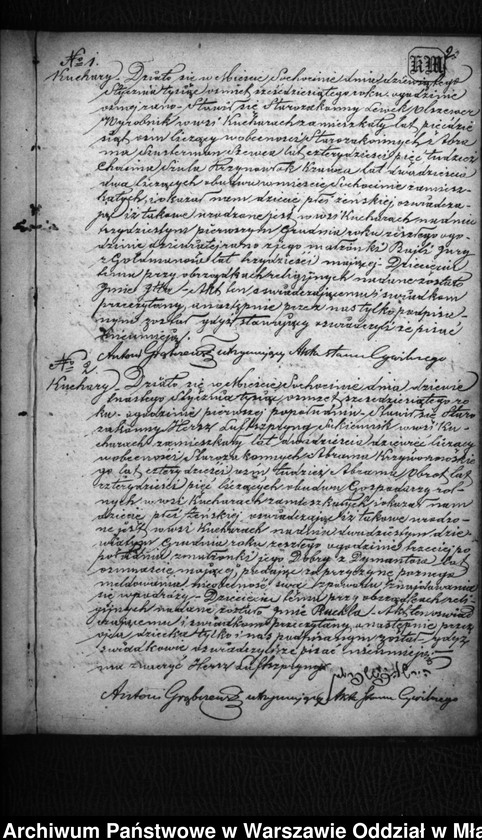 2.
KM
No 1.
Kuchary. Działo się w Mieście Sochocinie dnia dziewiątego
Stycznia tysiąc ośmset sześćdziesiątego roku, o godzinie
ósmej rano. Stawił się Starozakonny Lewek Olszewer
Wyrobnik w wsi Kucharach zamieszkały lat pięćdzie
siąt ośm liczący w obecności Starozakonnych Abra
ma Szusterman Szewca lat czterdzieści pięć tudzież
Chaima Szula Krawca lat dwadzieścia
dwa liczących obudwu w mieście Sochocinie zamiesz
kałych, i okazał nam dziecię płci żeńskiej oświadcza
jąc iż takowe urodzone jest w wsi Kucharach na dniu
trzydziestym pierwszym Grudnia roku zeszłego o go
dzinie dziewiątej rano z jego małżonki Rajli
z Goldmanów lat trzydzieści mającej. Dziecięciu
temu przy obrządkach religijnych nadane zostało
imie. Akt ten oświadczającemu i świadkom
przeczytany, a następnie przez nas tylko podpisa
nym został gdyż stawający oświadczyli że pisać
nieumieją.
Antoni utrzymujący Akta stanu Cywilnego
No 2.
Kuchary. Działo się w Mieście Sochocinie dnia dziewię
tnastego Stycznia tysiąc ośmset sześćdziesiątego ro
ku o godzinie pierwszej popołudniu. Stawił się Staro
zakonny Hersz Luftszpryng w wsi Ku
charach zamieszkały lat dwadzieścia dziewięć liczący
w obecności Starozakonnych Abrama
lat czterdzieści ośm tudzież Abrama Obrot lat
czterdzieści pięć liczących obudwu Gospodarzy rol
nych w wsi Kucharach zamieszkałych i okazał nam
dziecię płci żeńskiej oświadczając iż takowe urodzo
ne jest w wsi Kucharach na dniu dwudziestym dzie
wiątym Grudnia roku zeszłego o godzinie trzeciej po
południu z małżonki jego Dobry z Dymantów lat
mającej, podając za przyczynę poznego
meldowania nieobecność swą z powodu znajdowania
się w podróży. Dziecięciu temu przy obrządkach reli
gijnych nadane zostało imie Ruchla. Akt ten oświad
czającemu i świadkom przeczytany, a następnie przez
ojca dziecka tylko i nas podpisanym został gdyż
świadkowie oświadczyli że pisać nieumieją
Hersz Luftszpryng
Antoni utrzymujący Akta Stanu Cywilnego
Archiwum Państwowe w Warszawie Oddział w Mła